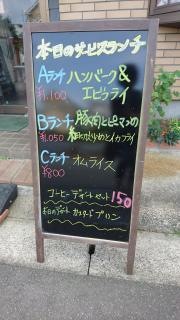 本日のサービスランチ
Aランチ ハンバーグ&
¥1,100 エビフライ
Bランチ 豚肉とピーマンの
¥1,050 炒めとイカフライ
Cランチ オムライス
¥800
コーヒー デザートセット 150
本日のデザート カスタードプリン